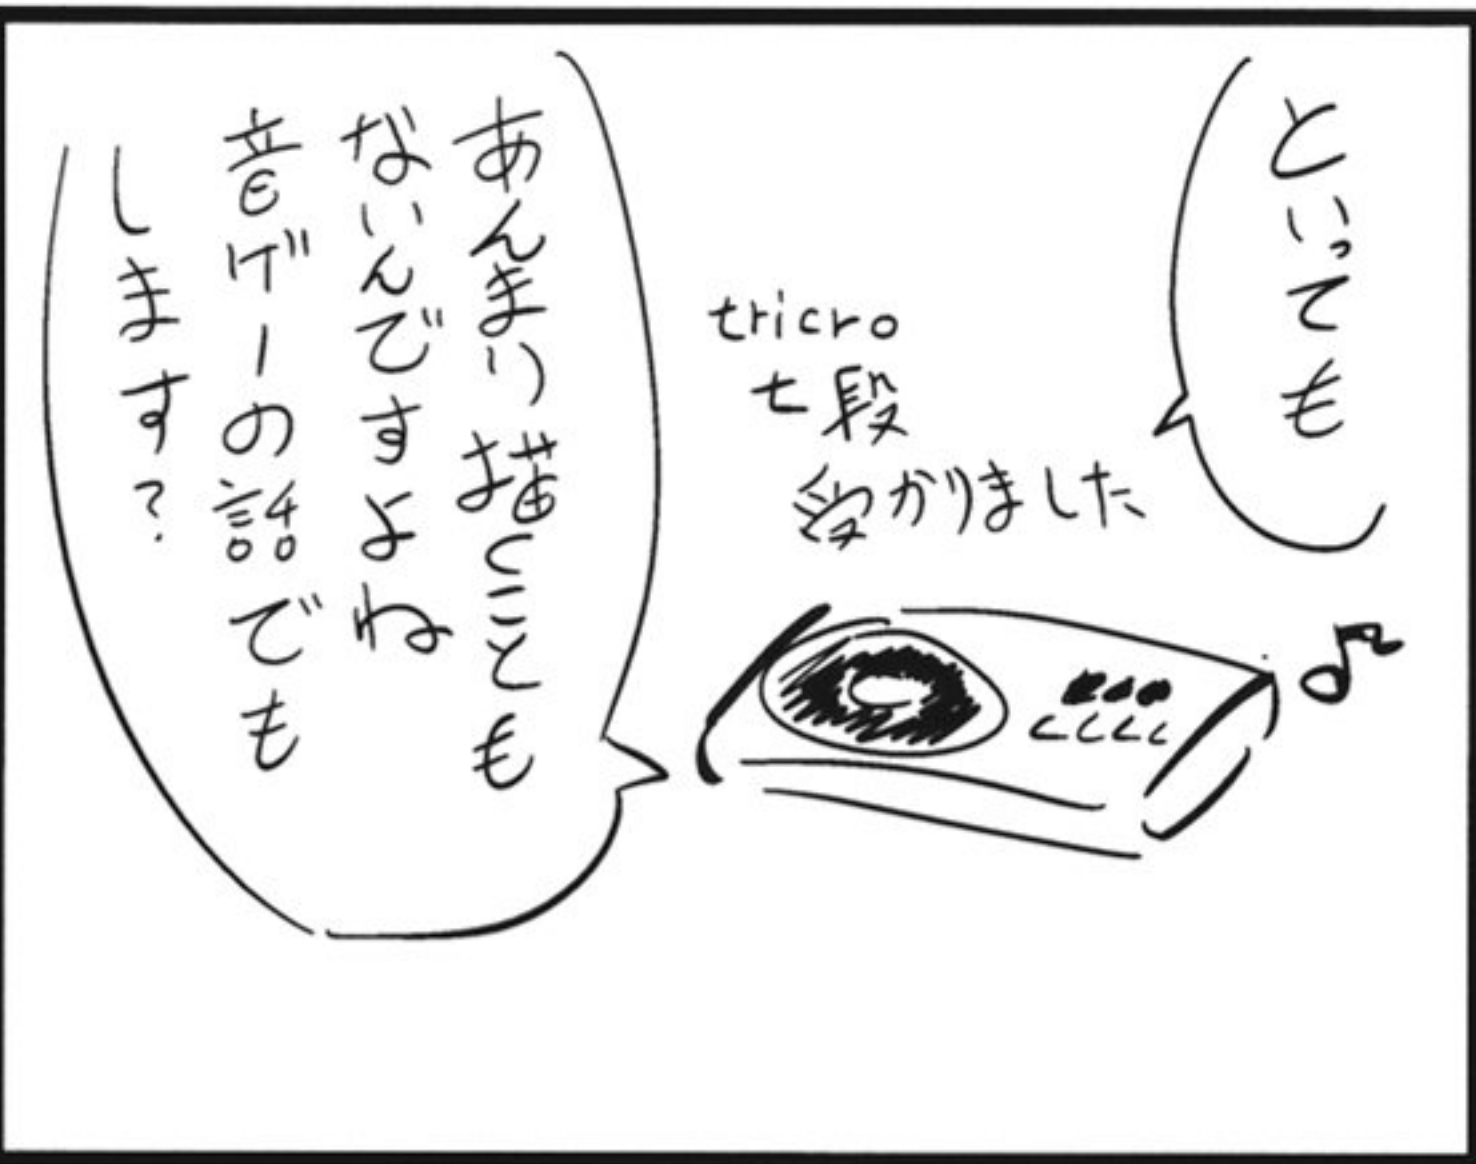 といっても
tricro
七段
受かりました
あんまり描くことも
ないんですよね
音ゲーの話でも
します？